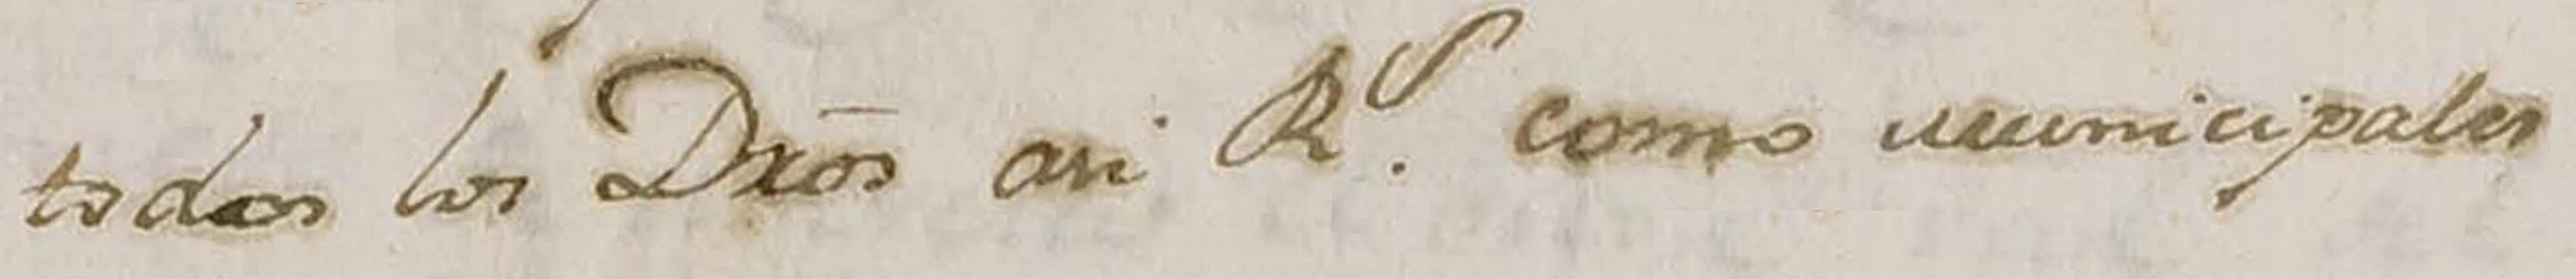 todos los Dr̄os asi R.s como municipales